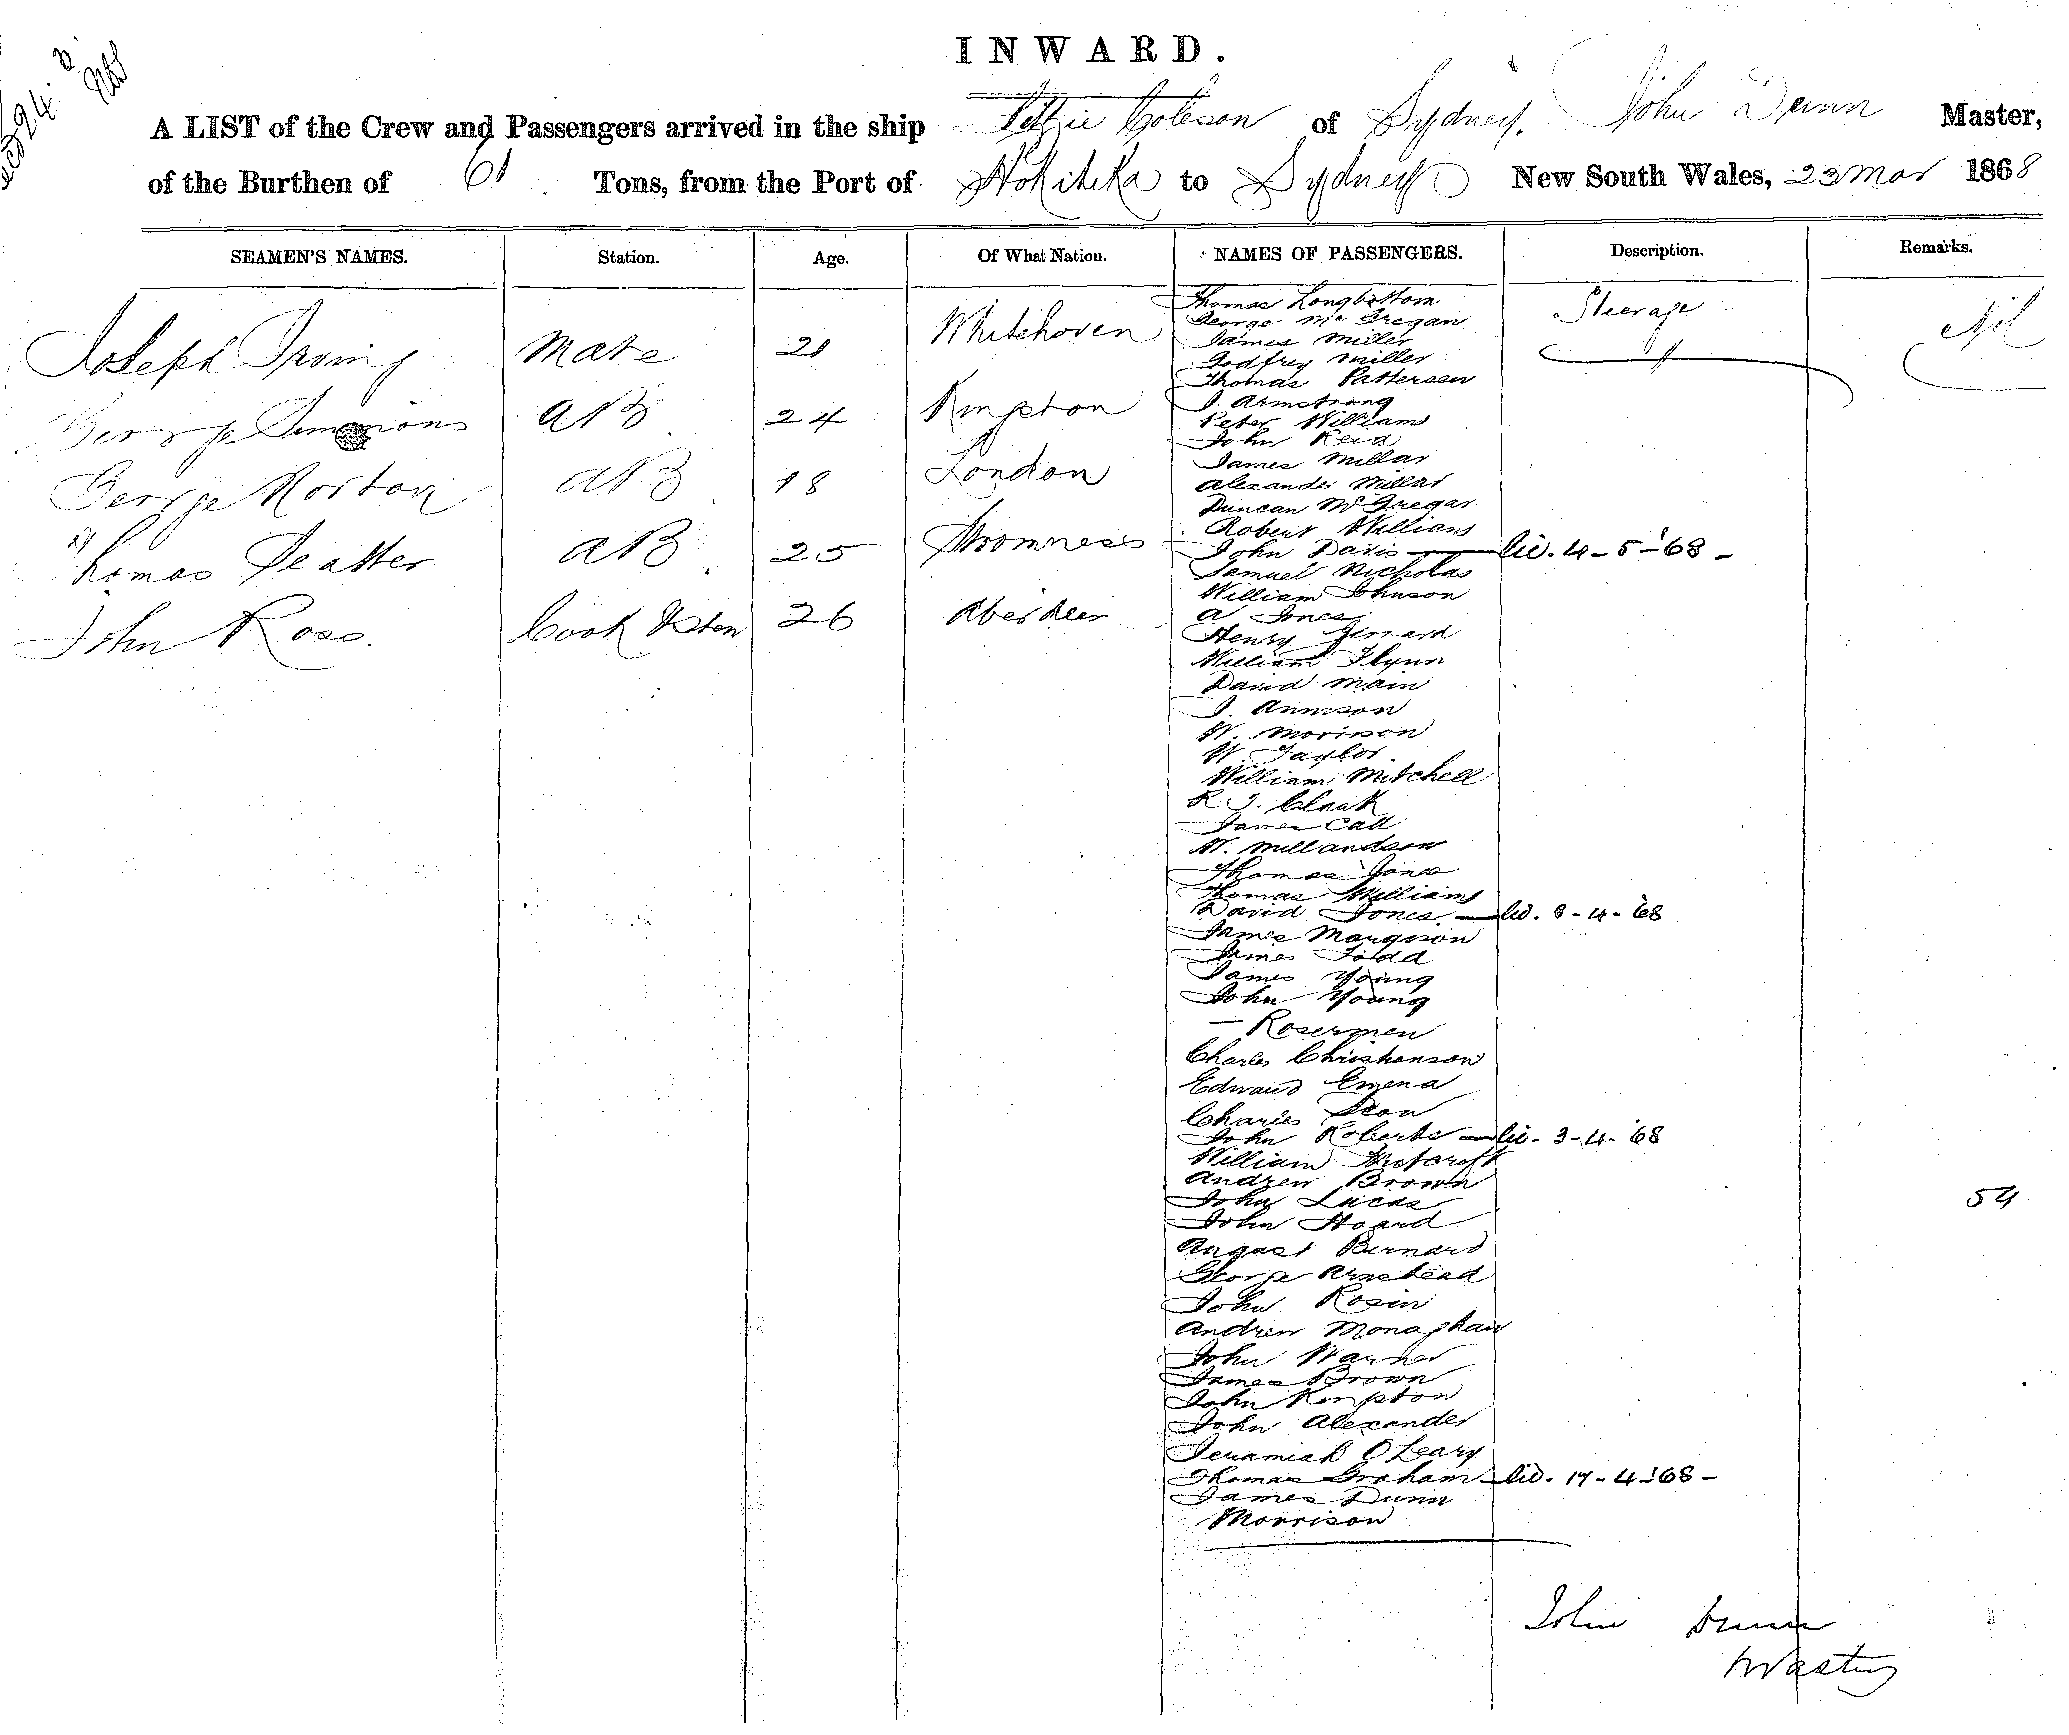 INWARD.
A LIST of the Crew and Passengers arrived in the ship of Sydney, John Dunn Master,
of the Burthen of 61 Tons, from the Port of Hokitika to Sydney New South Wales, 23 Mar 1868
SEAMEN'S NAMES. Station. Age. Of What Nation. NAMES OF PASSENGERS. Description. Remarks.
Joseph Irving Mate 21 Whitehoven
George Simmions AB 24 Kmpton
George Norton AB 18 London
Thomas Peatter AB 25 Stromness
John Ross. Cook & Sten 26 Aberdeen
Thomas Longbottom Steerage Nil
George Mc Gregan
James Miller
Godfrey Miller
Thomas Patterson
J. Armstrong
Peter William
John Reid
James Millar
Alexander Millar
Duncan McGregar
Robert Willians
John Davis — lid. 4-5-'68-
Samuel Nicholas
William Johnson
A Jones
Henry Gerrard
William Flynn
David Main
J. Annison
W. Morinson
W. Taylor
William Mitchell
R. J. Clark
James Call
W. Millandson
Thomas Jones
Thomas Williams
David Jones — lid. 8-4-'68
James Margison
James Todd
James Young
John Young
— Rosermen
Charles Christianson
Edward Emena
Charles Dean
John Roberts — lid. 3-4-'68
William
Andrew Brown
John Lucas 54
John Hoard
August Bernard
George Armstead
John Rosin
Andrew Monaghan
John Warner
James Brown
John Kimpton
John Alexander
Jeramiah O'Leary
Thomas Graham — lid. 17-4-'68-
James Dunn
Morrison
John Dunn
Master